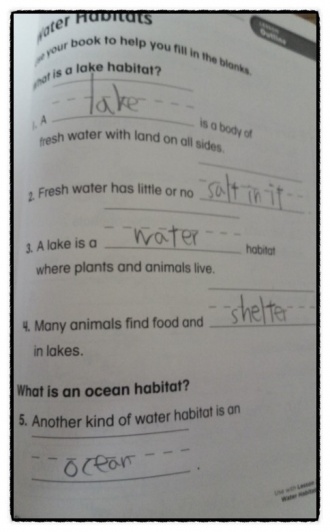 Water Habitats
Lesson
Outline
Use your book to help you fill in the blanks.
What is a lake habitat?
1. A lake is a body of
fresh water with land on all sides.
2. Fresh water has little or no salt in it
3. A lake is a water habitat
where plants and animals live.
4. Many animals find food and shelter
in lakes.
What is an ocean habitat?
5. Another kind of water habitat is an
ocean .
Use with Lesson
Water Habitats